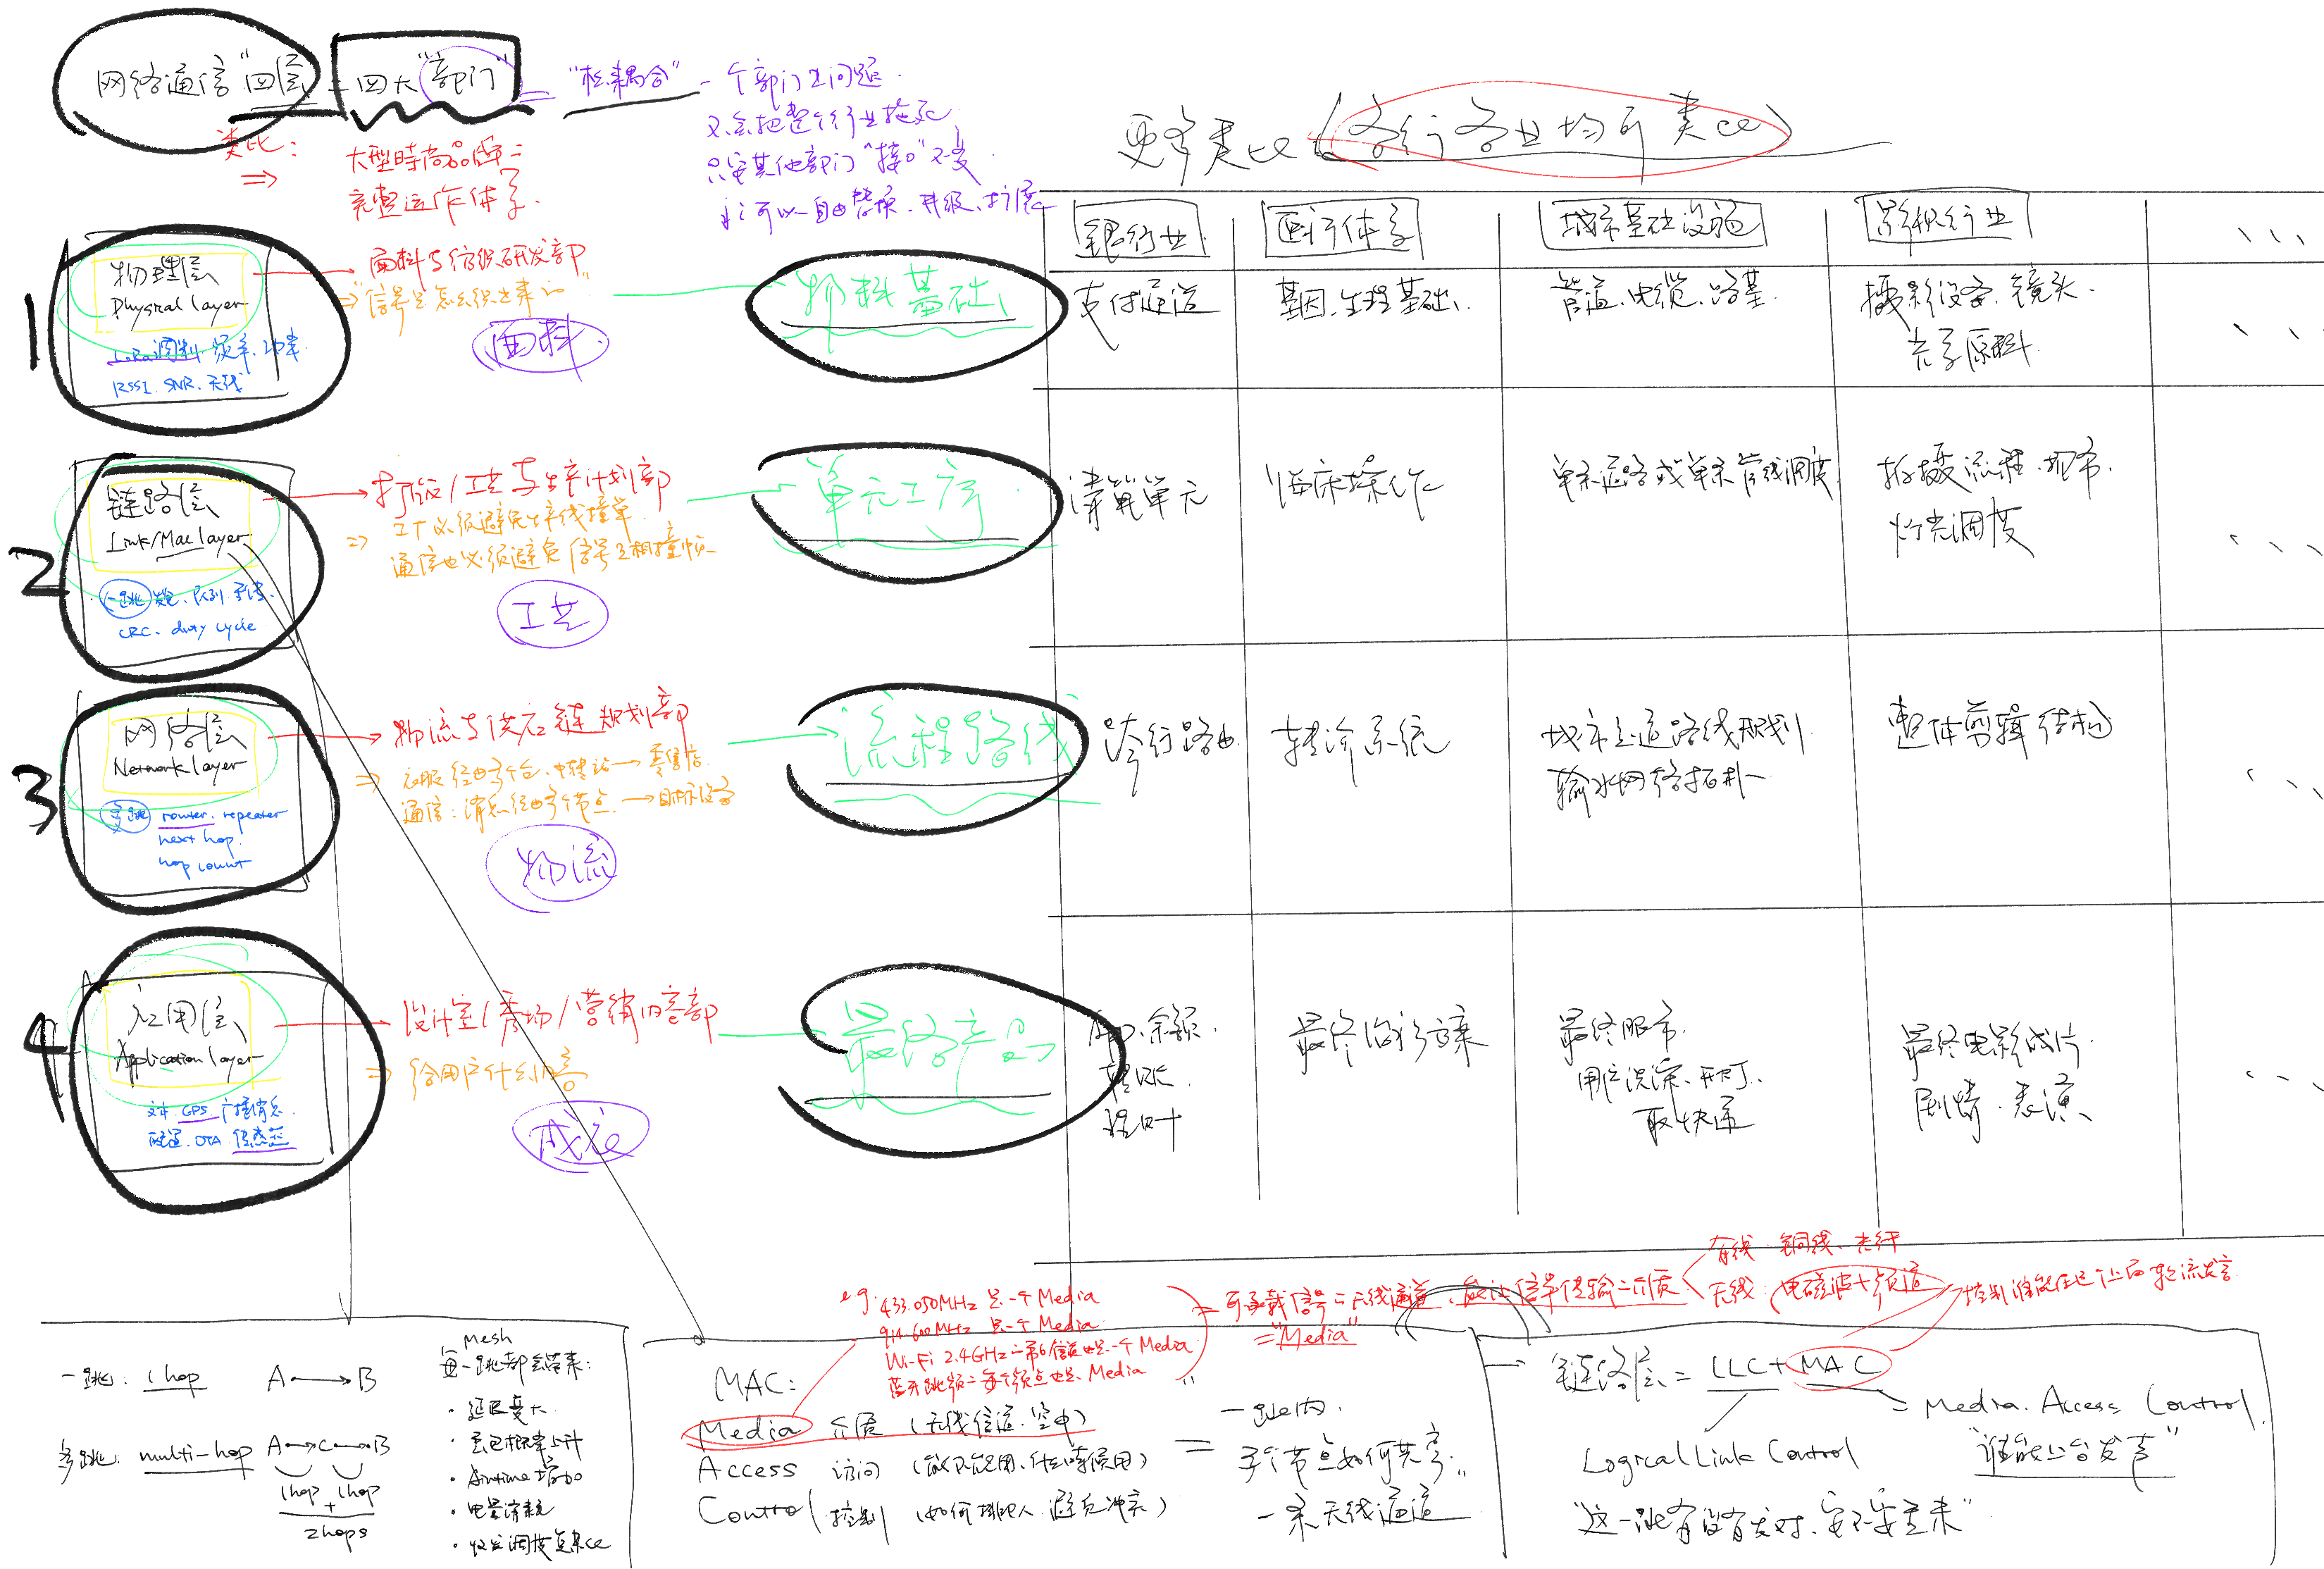 网络通信"四层" = 四大"部门" = "松耦合" - 一个部门出问题.
不会把整个行业拖死
只要其他部门"接口"不变
就可以自由替换、升级、扩展
类比: 大型时尚品牌
⇒ 完整运作体系.
更多类比 (各行各业均可类比)
银行业
医疗体系
城市基础设施
影视行业
1
物理层
Physical layer
LoRa调制 频率、功率
RSSI. SNR. 天线
面料与纺织研发部
⇒ "信号是怎么织出来的"
面料
物料基础
支付通道
基因、生理基础
管道、电缆、路基
摄影设备、镜头
光学原料
2
链路层
Link/Mac layer
一跳 发包、队列、重传.
CRC. duty cycle
打版/工艺与生产计划部
⇒ 工厂必须避免产线撞单
通信也必须避免信号互相撞帧
工艺
单元工序
清算单元
临床操作
单条道路或单条管线调度
拍摄流程、现场
灯光调度
3
网络层
Network layer
多跳 router. repeater
next hop.
hop count
物流与供应链规划部
⇒ 衣服经由多个仓、中转站 → 零售店
通信: 消息经由多个节点 → 目标设备
物流
流程路线
跨行路由
转诊系统
城市主道路线规划
输水网络拓扑
整体剪辑结构
4
应用层
Application layer
文本. GPS. 广播消息
配置. OTA. 传感器
设计室/秀场/营销内容部
⇒ 给用户什么内容
成衣
最终产品
App、余额.
转账.
提叶
最终治疗方案
最终服务.
用户洗澡、开灯、
取快递
最终电影成片
剧情、表演
e.g. 433.050MHz 是一个 Media
914.600MHz 是一个 Media
Wi-Fi 2.4GHz 第6信道也是一个 Media
蓝牙跳频 每个频点也是 Media
= 可承载信号 无线通道、能让信号传输 介质
= "Media"
有线: 铜线、光纤
无线: 电磁波+频道
控制谁能在这个上面轮流发言
一跳: 1 hop A → B
多跳: multi-hop A → C → B
1hop + 1hop
2hops
Mesh
每一跳都会带来:
· 延迟变大
· 丢包概率上升
· Airtime 增加
· 电量消耗
· 收发调度复杂化
MAC:
Media 介质 (无线信道、空中)
Access 访问 (能不能用、什么时候用)
Control 控制 (如何排队、避免冲突)
=
"一跳内,
多个节点如何共享
一条无线通道"
链路层 = LLC + MAC
= Media Access Control
"谁能上台发声"
Logical Link Control
"这一跳有没有发对、要不要重来"